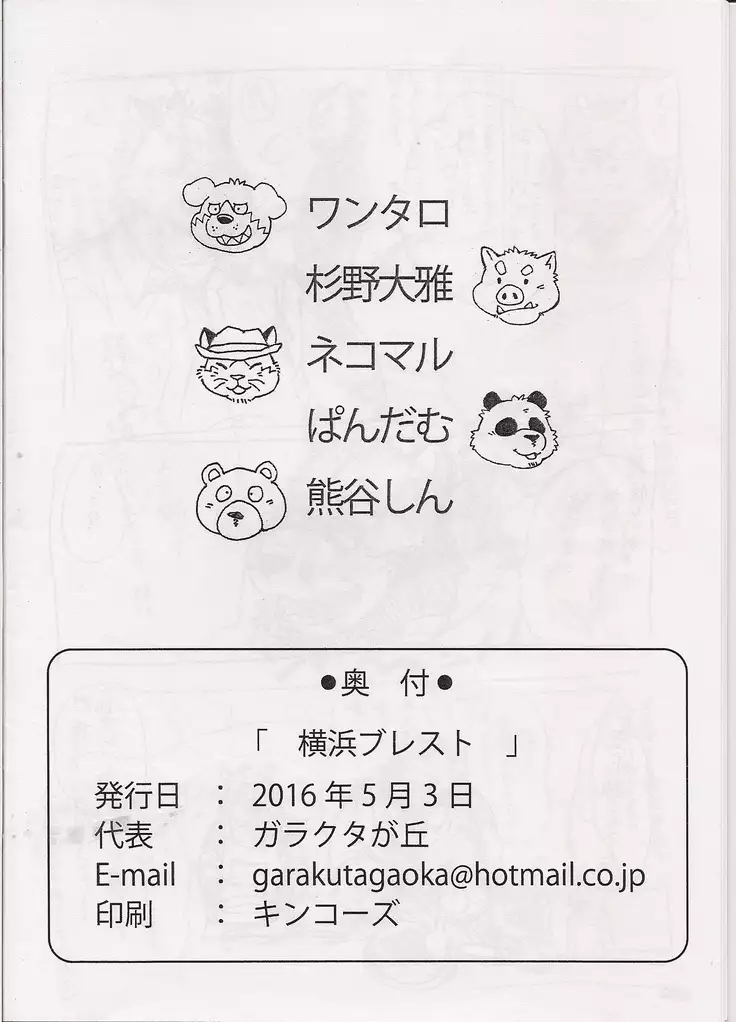 ワンタロ
杉野大雅
ネコマル
ぱんだむ
熊谷しん
●奥　付●
「　横浜ブレスト　」
発行日　：　2016 年 5 月 3 日
代表　：　ガラクタが丘
E-mail　：　garakutagaoka@hotmail.co.jp
印刷　：　キンコーズ